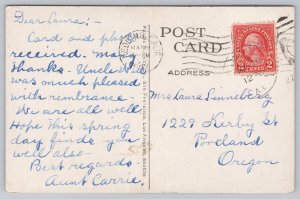 Dear Laura:-
Card and
received. Many
thanks. Uncle Will
was much pleased
with rembrance.
We are all well.
Hope this spring
day finds you
well also.
Best regards.
Aunt Carrie.
POST
CARD
ADDRESS
Mrs Laura Linneberg
1229 Kerby St
Portland
Oregon